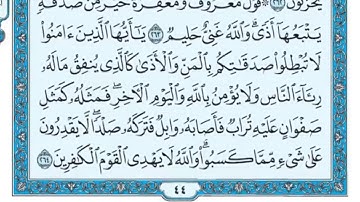 يَحْزَنُونَ ﴿٢٦٢﴾ ۞ قَوْلٌ مَّعْرُوفٌ وَمَغْفِرَةٌ خَيْرٌ مِّن صَدَقَةٍ
يَتْبَعُهَآ أَذًى ۗ وَٱللَّهُ غَنِىٌّ حَلِيمٌ ﴿٢٦٣﴾ يَـٰٓأَيُّهَا ٱلَّذِينَ ءَامَنُوا۟
لَا تُبْطِلُوا۟ صَدَقَـٰتِكُم بِٱلْمَنِّ وَٱلْأَذَىٰ كَٱلَّذِى يُنفِقُ مَالَهُۥ
رِئَآءَ ٱلنَّاسِ وَلَا يُؤْمِنُ بِٱللَّهِ وَٱلْيَوْمِ ٱلْـَٔاخِرِ ۖ فَمَثَلُهُۥ كَمَثَلِ
صَفْوَانٍ عَلَيْهِ تُرَابٌ فَأَصَابَهُۥ وَابِلٌ فَتَرَكَهُۥ صَلْدًا ۖ لَّا يَقْدِرُونَ
عَلَىٰ شَىْءٍ مِّمَّا كَسَبُوا۟ ۗ وَٱللَّهُ لَا يَهْدِى ٱلْقَوْمَ ٱلْكَـٰفِرِينَ ﴿٢٦٤﴾
٤٤